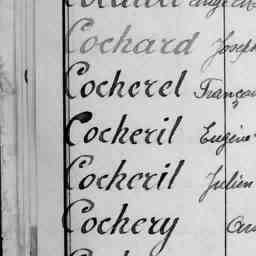 Cochard Joseph
Cocherel François
Cocheril Eugène
Cocheril Julien
Cochery